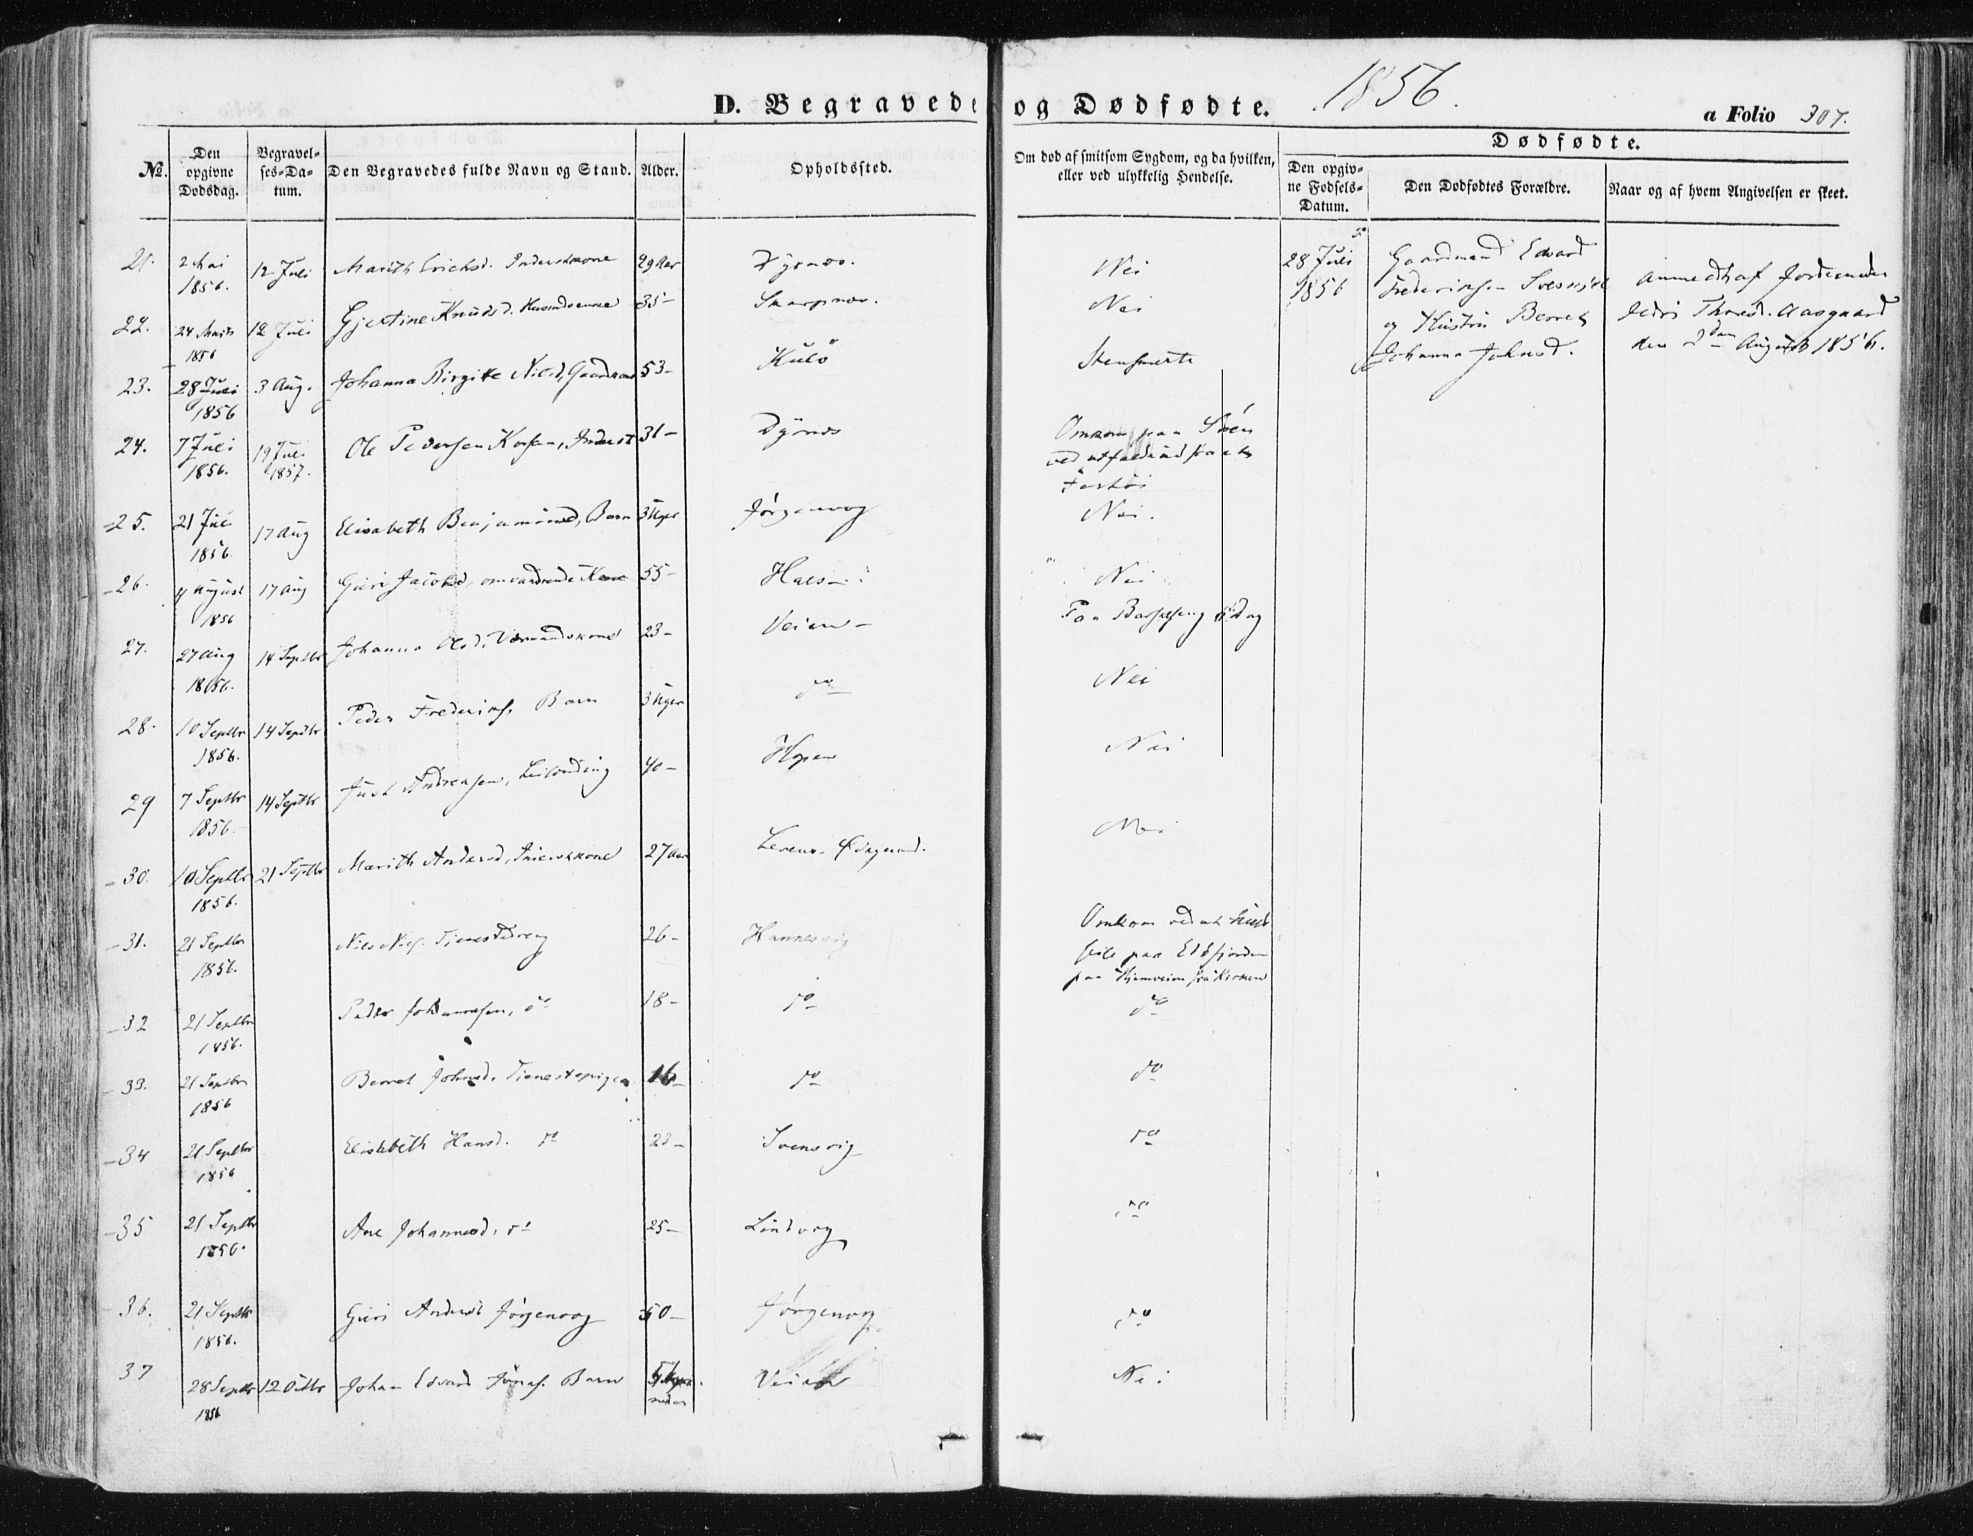 D. Begravede og Dødfødte. 1856. a Folio 307.
No. Den opgivne Dødsdag. Begravelses-Datum. Den Begravedes fulde Navn og Stand. Alder. Opholdssted. Om død af smitsom Sygdom, og da hvilken, eller ved ulykkelig Hendelse. Dødfødte. Den opgivne Fødsels-Datum. Den Dødfødtes Forældre. Naar og af hvem Angivelsen er skeet.
21. 2 Mai 1856. 12 Juli Marith Erichsd. Inderstkone 29 Aar Dyrnæs. Nei
28 Juli 1856 Gaardmand Edvard
og Hustru Berret
Johanna Johnsd.
anmeldt af Jordemoder
den 3 August 1856.
22. 24 1856 12 Juli Gjertine Knudsd. 35 - Skarpnæs. Nei
23. 28 Juli 1856 3 Aug. Johanna Birgitte Nilsd, Gaardkone 53 - Kulö
24. 7 Juli 1856. 19 Juli 1857. Ole Pedersen Inderst 31 - Dyrnæs Omkom paa Söen
25. 21 Juli 1856 17 Aug Elisabeth Benjaminsd, Barn 3 Uger Jørgenvog Nei.
26. 4 August 1856 17 Aug Guri Jacobsd, omvandrende Kone 55 - Nei
27. 27 Aug 1856. 14 Septbr Johanna Olsd. 23 - Veien - Paa Barselseng Dag
28. 10 Septbr 1856. 14 Septbr Peder Frederiks. Barn 3 Uger do Nei
29 7 Septbr 1856. 14 Septbr Just Andreasen, Leilænding 40 - Hopen Nei
30. 10 Septbr 1856. 21 Septbr Marith Andersd, Inderstkone 27 Aar Nei
31. 21 Septbr 1856. Niels Niels. Tienestedreng 26 - Hannesvig Omkom ved at
paa
paa Hjemveien fra Kirken
32 21 Septbr 1856. Peder Johannesen, do 18 - do do
33. 21 Septbr 1856 Berret Johnsd. Tienestepige 16 - do do
34 21 Septbr 1856 Elisabeth Hansd. do Svensvig do
35 21 Septbr 1856. Ane Johannesd. do 25 - Lindvog do
36. 21 Septbr 1856. Guri Andersd Jørgenvog 50 - Jørgenvog do
37 28 Septbr 1856 12 Octbr Johan Edvard Barn Veien Nei